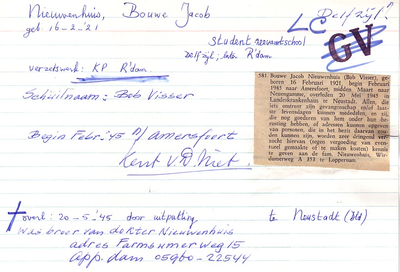 Nieuwenhuis, Bouwe Jacob
geb. 16-2-'21
LC Delfzijl!
GV
student zeevaartschool
Delfzijl, later R'dam
verzetswerk: KP R'dam
Schuilnaam: Bob Visser
Begin Febr. '45 n/ Amersfoort
Kent v.d. Niet.
581. Bouwe Jacob Nieuwenhuis (Bob Visser), ge-
boren 16 Februari 1921, begin Februari
1945 naar Amersfoort, midden Maart naar
Neuengamme, overleden 20 Mei 1945 in
Landeskrankenhaus te Neustadt. Allen, die
iets omtrent zijn gevangenschap en/of laat-
ste levensdagen kunnen mededelen, en zij,
die nog goederen van hem onder hun be-
rusting hebben, of adressen kunnen opgeven
van personen, die in het bezit daarvan zou-
den kunnen zijn, worden zeer dringend ver-
zocht hiervan (tegen vergoeding van even-
tueel gemaakte of te maken kosten) bericht
te geven aan de fam. Nieuwenhuis, Wir-
dumerweg A 153 te Loppersum.
† overl. 20-5-'45 door uitputting te Neustadt (Dld)
Was broer van dokter Nieuwenhuis
adres Farmsumerweg 15
App. dam 05960-22544